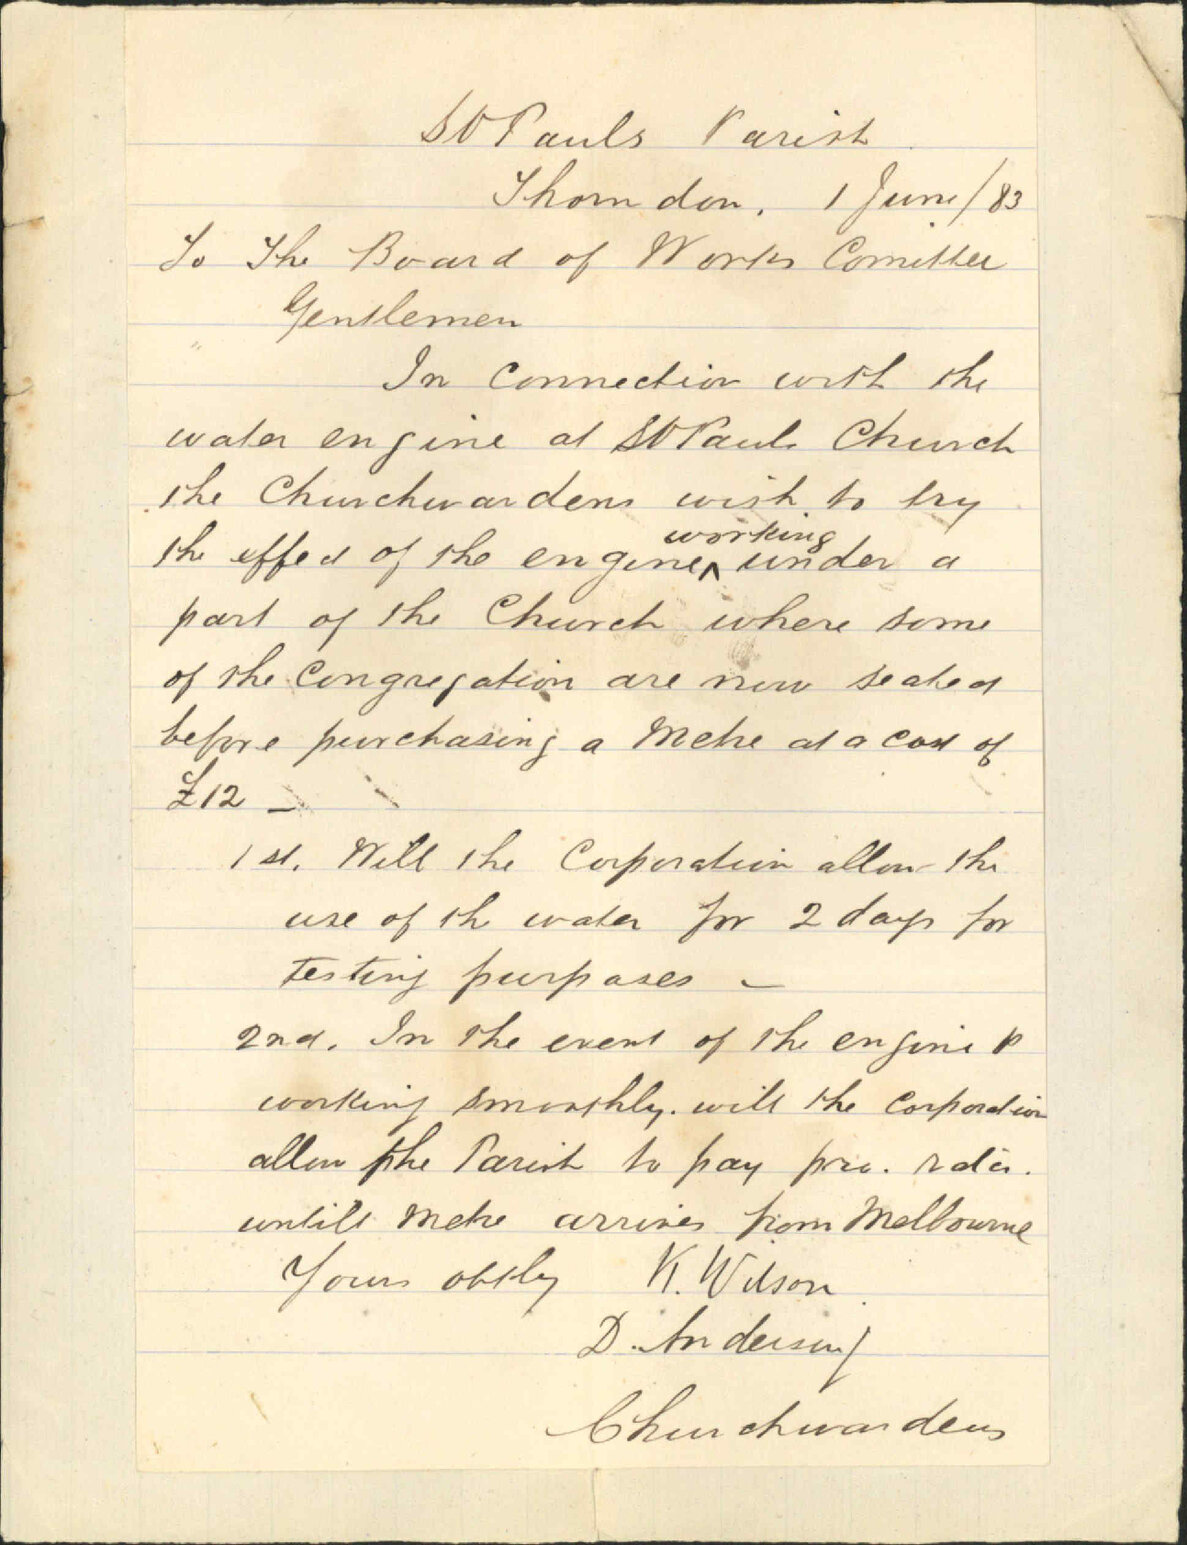 St Pauls Parish
Thorndon. 1 June/83
To The Board of Works Comittee
Gentlemen
In Connection with the
water engine at St Pauls Church
the Churchwardens wish to try
the effect of the engine ^working under a
part of the Church where some
of the Congregation are now seated
before purchasing a Metre at a cost of
£12 —
1st. Will the Corporation allow the
use of th water for 2 days for
testing purposes —
2nd. In the event of the engine
working smoothly. will the Corporation
allow the Parish to pay pro. rata.
untill Metre arrives from Melbourne
Yours obtly K. Wilson
D. Anderson
Churchwardens